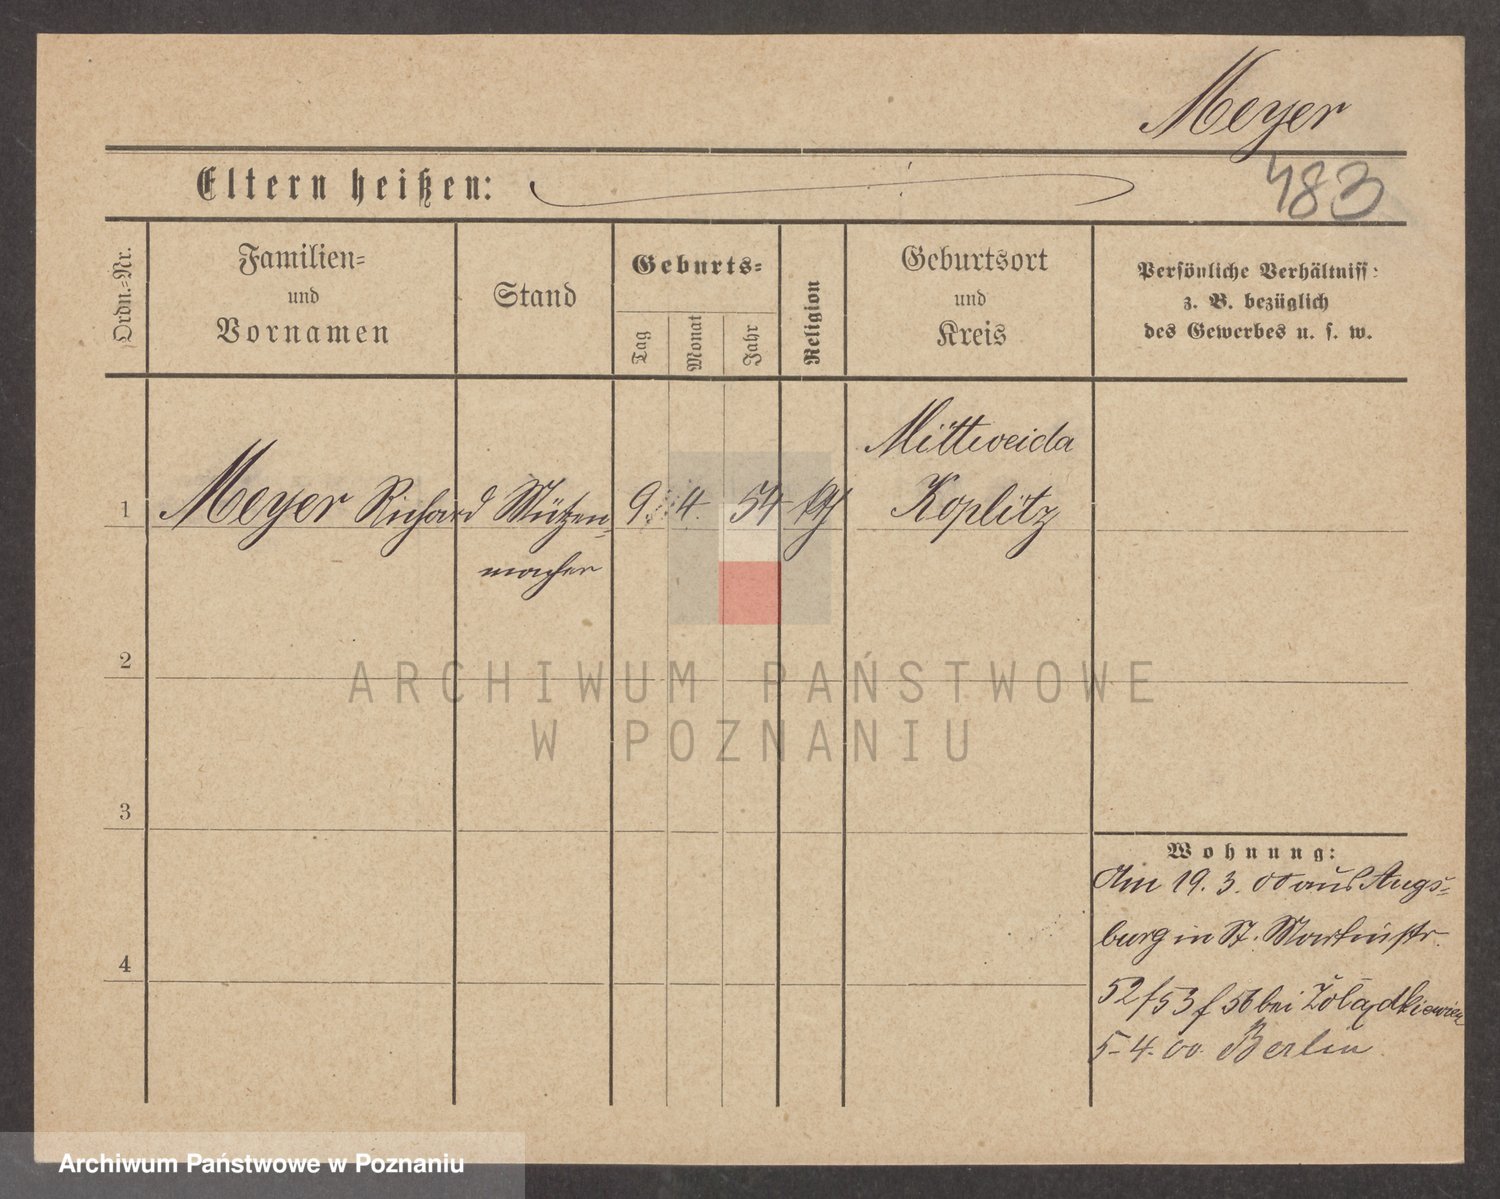 Meyer
483
Eltern heißen:
Ordn.-Nr.
Familien-
und
Vornamen
Stand
Geburts-
Tag
Monat
Jahr
Religion
Geburtsort
und
Kreis
Persönliche Verhältniss:
z. B. bezüglich
des Gewerbes u. s. w.
1
Meyer Richard
Mützen-
macher
9. 4. 54
Mittweida
Koplitz
2
ARCHIWUM PAŃSTWOWE
W POZNANIU
3
4
Wohnung:
Am 19. 3. 00 aus Augs-
burg in St. Martinstr.
52/53 bei
5-4.00. Berlin
Archiwum Państwowe w Poznaniu